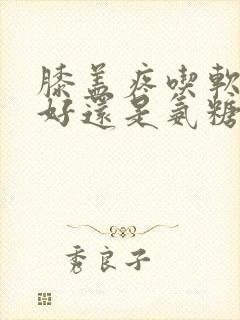 膝盖疼喫軟
好還是氨糖
秀良子